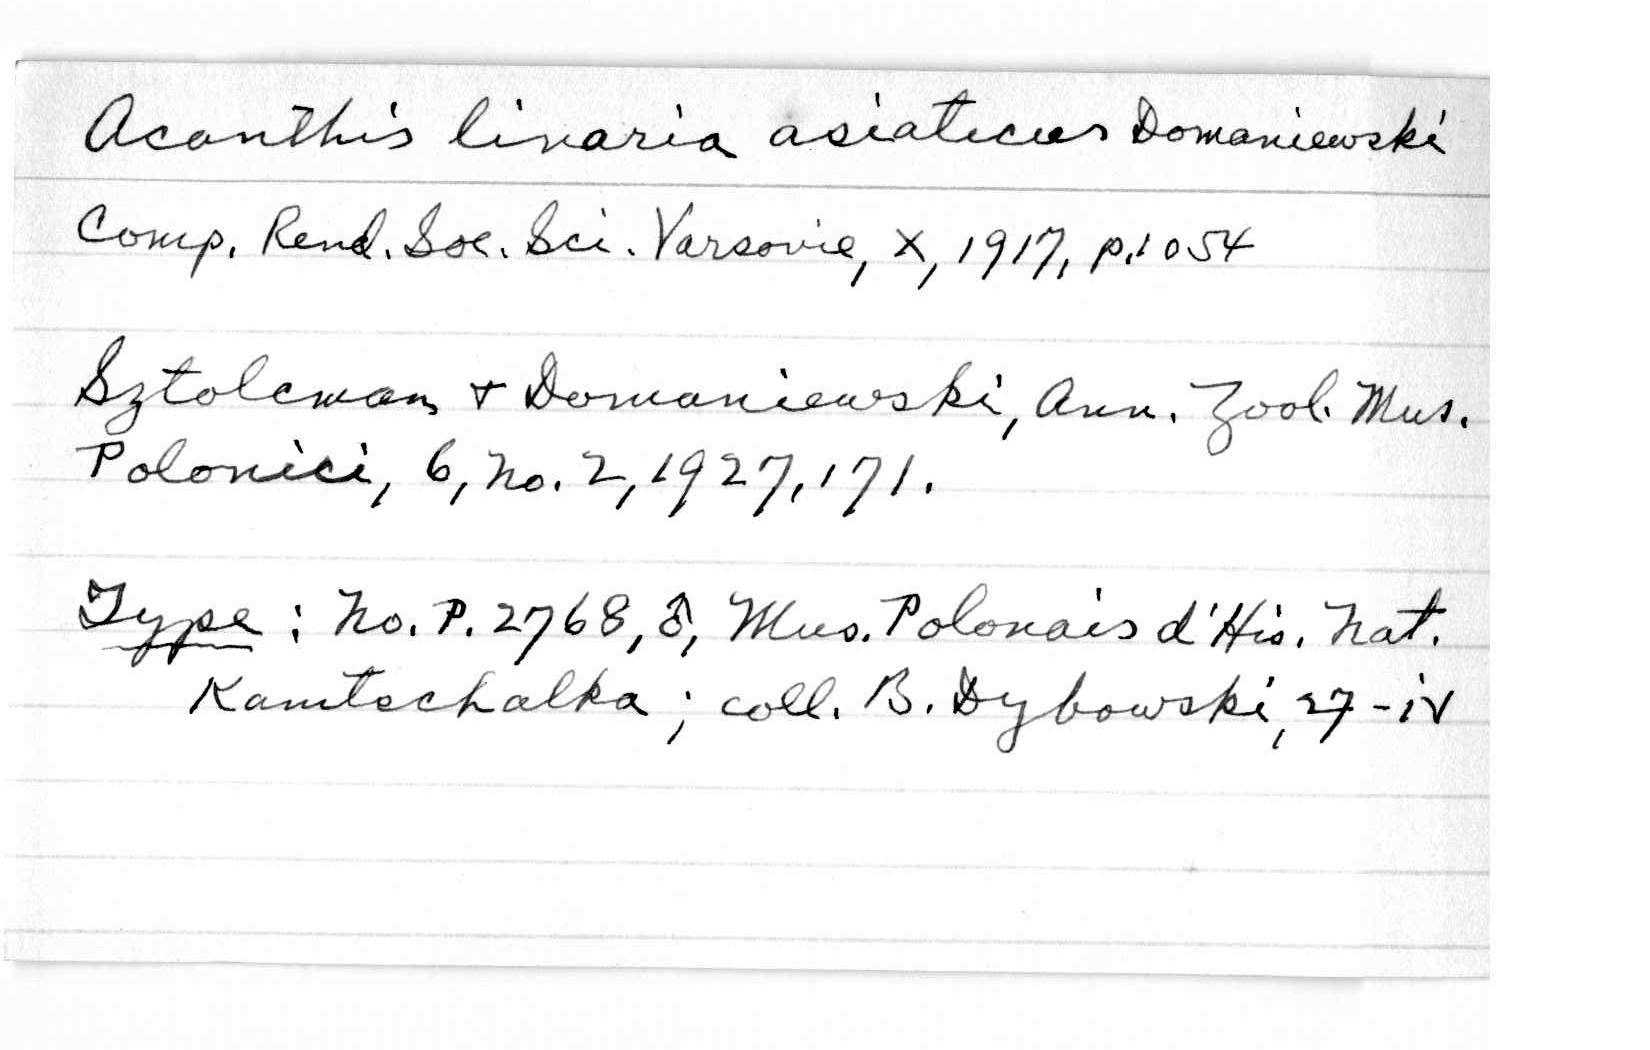 Acanthis linaria asiaticus Domaniewski
Comp. Rend. Soc. Sci. Varsovie, X, 1917, p. 1054
Sztolcman & Domaniewski, Ann. Zool. Mus.
Polonici, 6, No. 2, 1927, 171.
Type: No. P. 2768, ♂, Mus. Polonais d'His. Nat.
Kamtschalka; coll. B. Dybowski, 27-iv